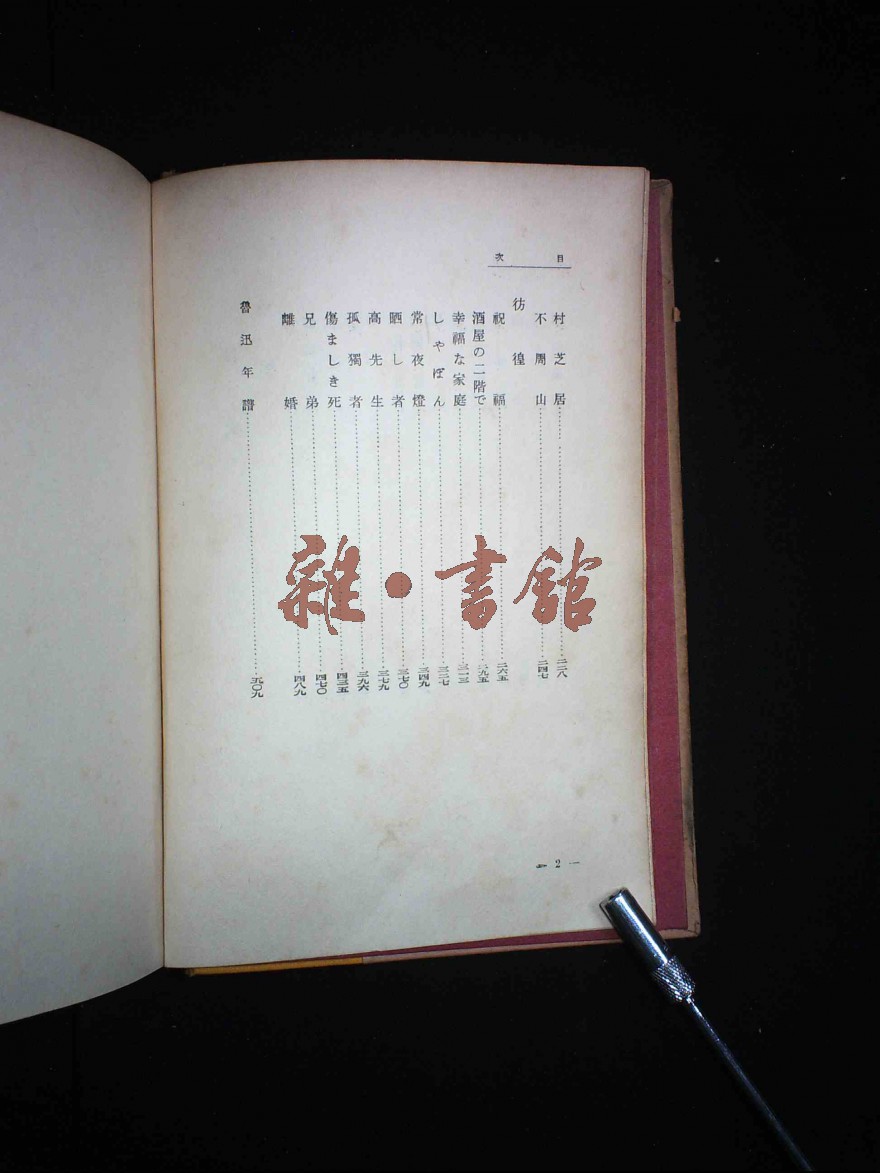 目次
村芝居 二二八
不周山 二四七
彷徨
祝福 二六五
酒屋の二階で 二九五
幸福な家庭 三一三
しやぼん 三二七
常夜燈 三四九
晒し者 三七〇
高先生 三七九
孤獨者 三九六
傷ましき死 四三五
兄弟 四七〇
離婚 四八九
魯迅年譜 五〇九
— 2 —
雜·書館